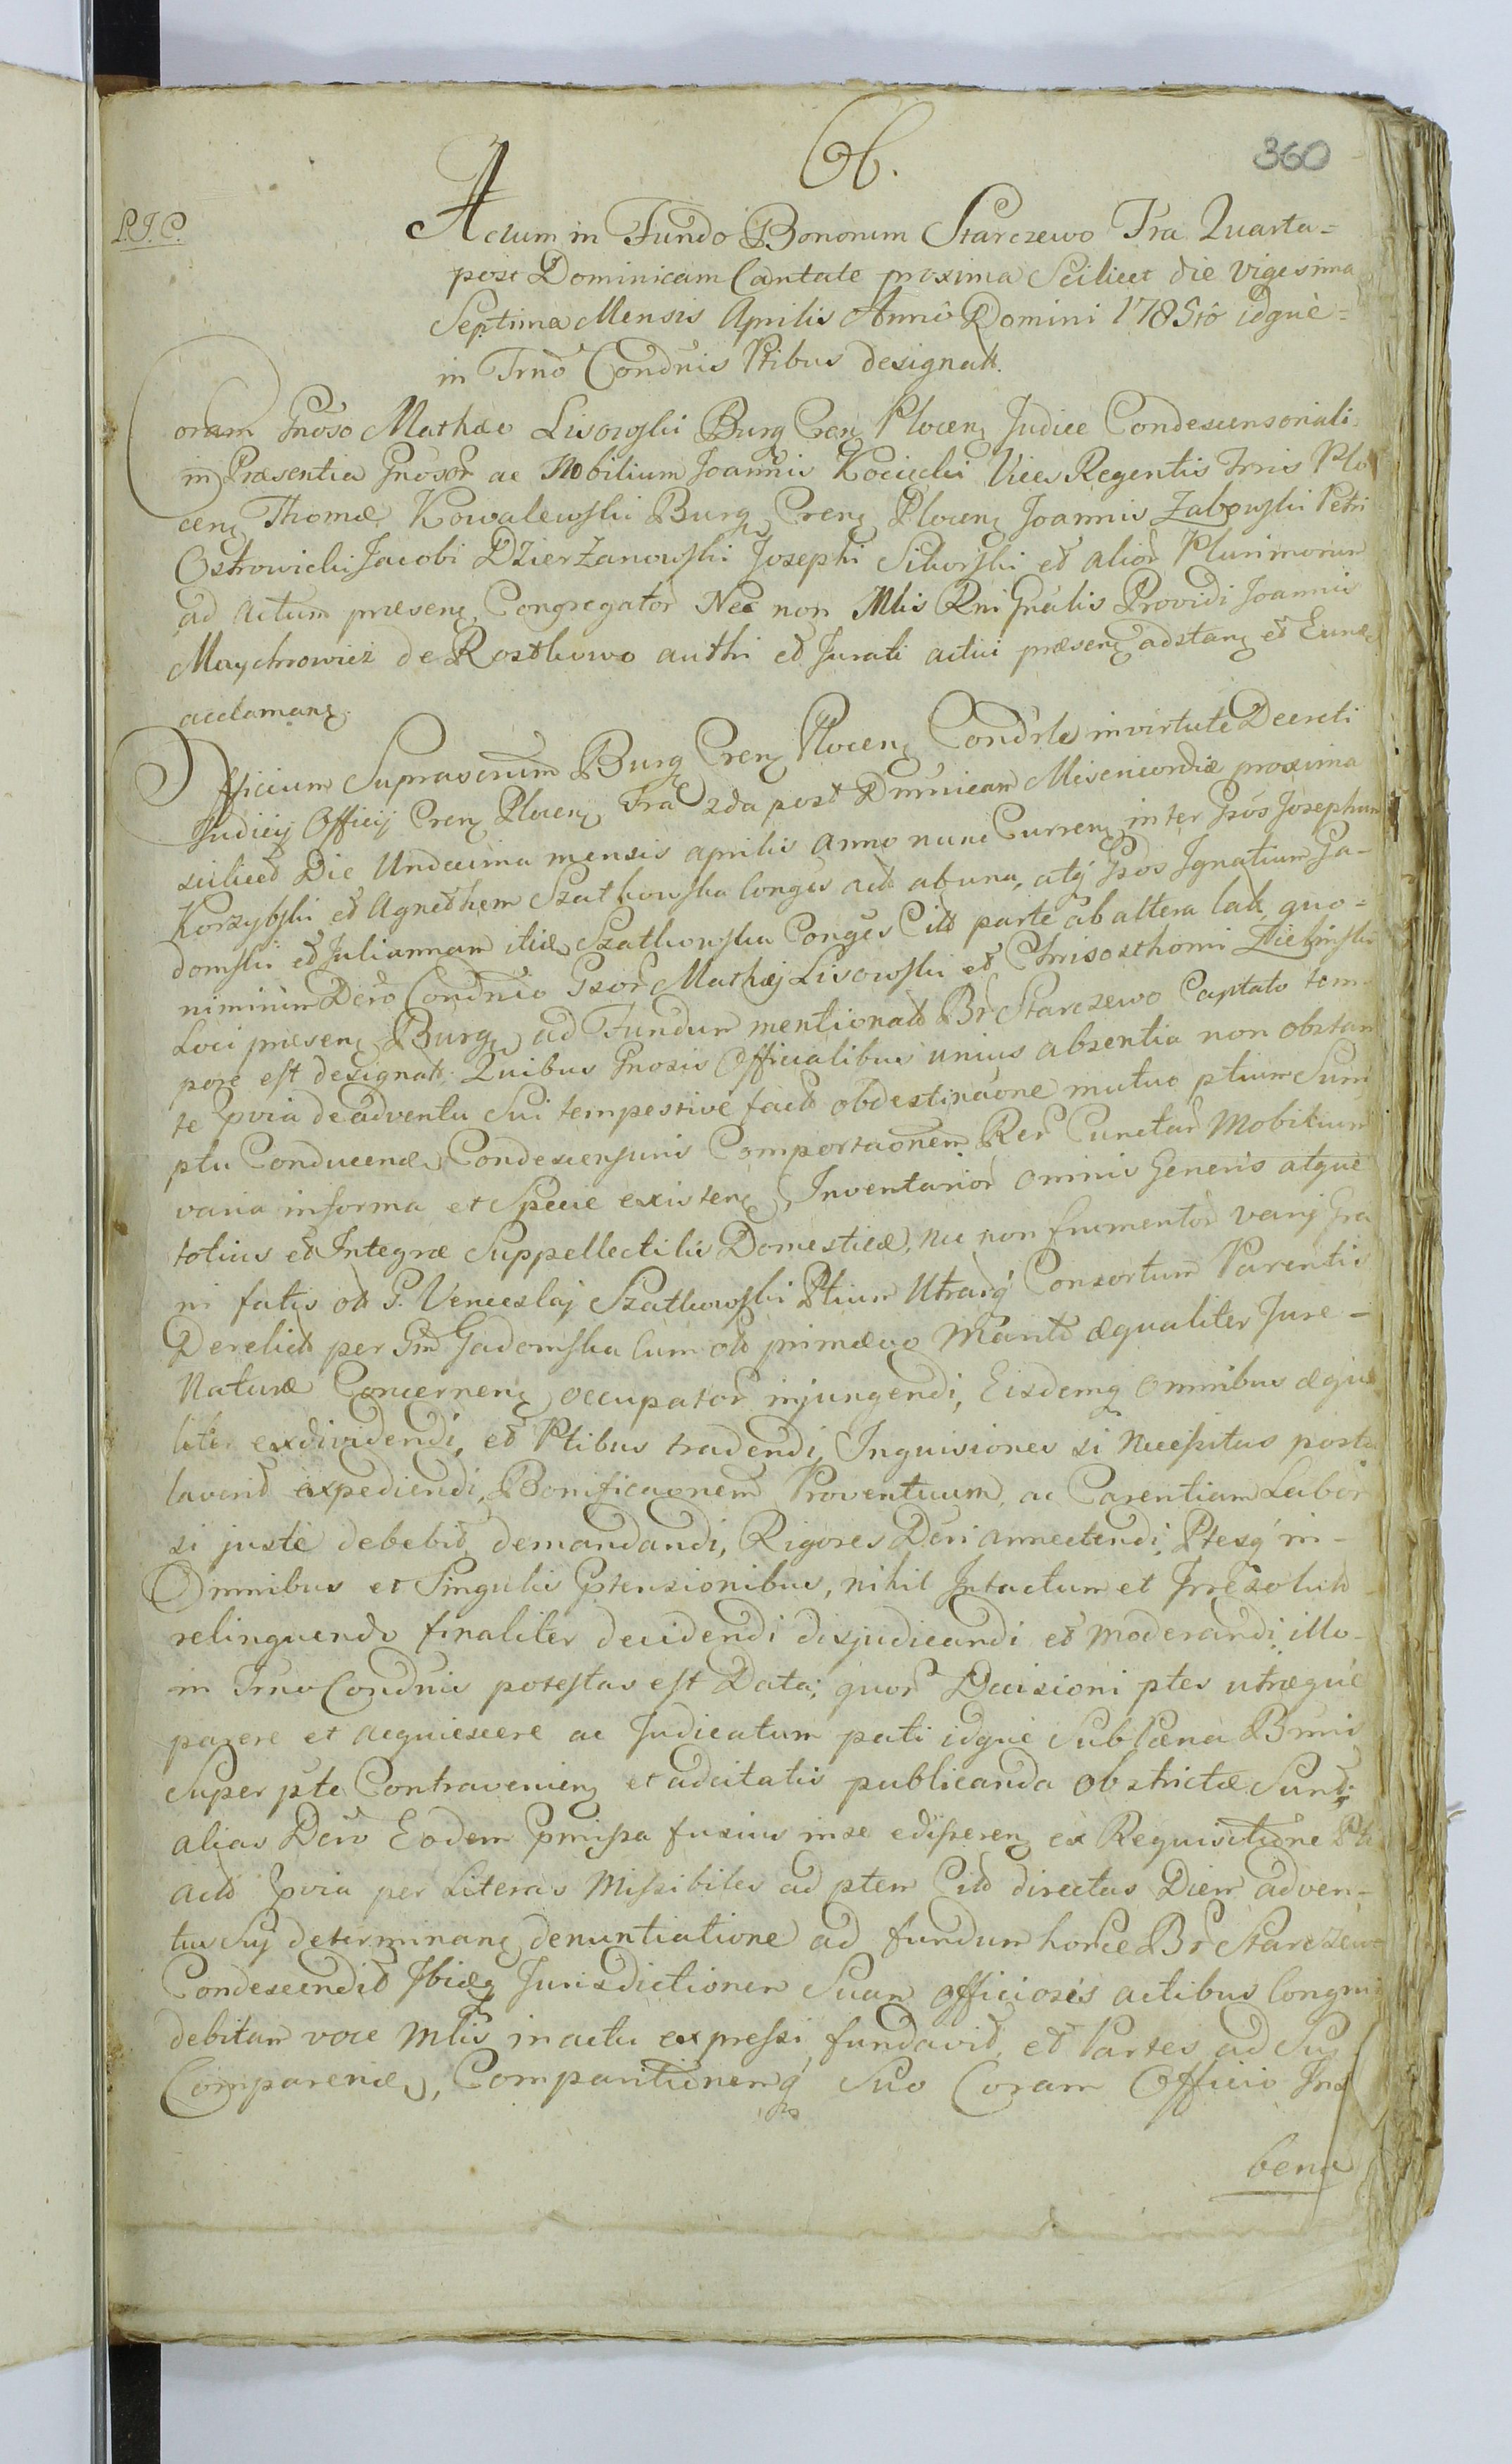 360
L.J.C.
Actum in Fundo Bonorum Starczewo Fra Quarta=
post Dominicam Cantate proxima Scilicet die vigesima
Septima Mensis Aprilis Anno Domini 1785to idque=
in Trno Condnis Ptibus designatt.
Coram Gnoso Mathæo Lisowski Burg Cren Plocen Judice Condescensoriali
in Præsentia Gnosor ac Nobilium Joannis Kocięcki Vices Regentis Trris Plo
cen Thomæ Kowalewski Burg Cren Plocen Joannis Zabowski Petri
Ostrowicki Jacobi Dzierżanowski Josephi Sikorski et alior Plurimorum
ad actum præsen Congregator Nec non Mlis Rni Gnalis Providi Joannis
Maychrowicz de Rostkowo authi et Jurati actui præsen adstan et Eund
acclaman.
Officium Suprascrum Burg Cren Plocen Condrle invirtute Decreti
Judicij Officij Cren Plocen Fra 2da post Dmnicam Misericordiæ proxima
scilicet Die Undecima mensis aprilis anno nunc Curren inter Gsos Josephum
Korzybski et Agnethem Szatkowska Conges actt ab una, atq Gsos Ignatium Ga-
domski et Juliannam itidem Szatkowska Conges Citt parte ab altera latt, quo=
nimirum Dcro Condnio Gsor Mathæj Lisowski et Chrisosthomi Zielinski
Loci præsen Burg ad Fundum mentionatt Br Starczewo Captato tem-
pore est designatt. Quibus Gnosis Officialibus unius absentia non obstan
te Pvia de adventu Sui tempestive factt obdestinaone mutuo ptium Sum
ptu Conducen Condescensuris Comportaonem Rer Cunctar Mobilium
varia informa et Specie existen, Inventarior omnis Generis atque
totius et Integræ Suppellectilis Domesticæ, nec non frumentor varij Gra
ni fatis ott G. Venceslaj Szatkowski Ptium Utrarq Consortum Parentis
Derelictt per Gm Gadomska cum ott primævo Maritt æqualiter Jure-
Naturæ Concernen occupator injungendi, Eisdemq omnibus æqua
liter exdividendi, et Ptibus tradendi, Inquisiones si necessitas postu
laverit expediendi, Bonificaonem Proventuum, ac Carentiam Labor
si juste debebit demandandi, Rigores Dcri annectendi, Ptesq in-
Omnibus et Singulis Ptensionibus, nihil Intactum et Irresolutt
relinquendo finaliter decidendi disjudicandi et moderandi illo-
in Trno Condnis potestas est Data; quor Decisioni ptes utræque
parere et acquiescere ac Judicatum pati idque Sub Pæna Bmis
Super pte Contravenien et adcitatis publicanda obstrictæ Sunt;
alias Dcro Eodem Pmissa fusius in se edisseren ex Requisitione Pte
actt Pvia per Literas Missibiles ad ptem Citt directas Diem adven-
tus Suj determinan denuntiatione ad fundum horce Br Starczewo
Condescendit Ibiq Jurisdictionem Suam officiosis actibus Congrui
debitam voce Mlis in actu expressi fundavit, et Partes ad Sui
Comparend, Comparitionemq Suo Coram Officio Ins
bend